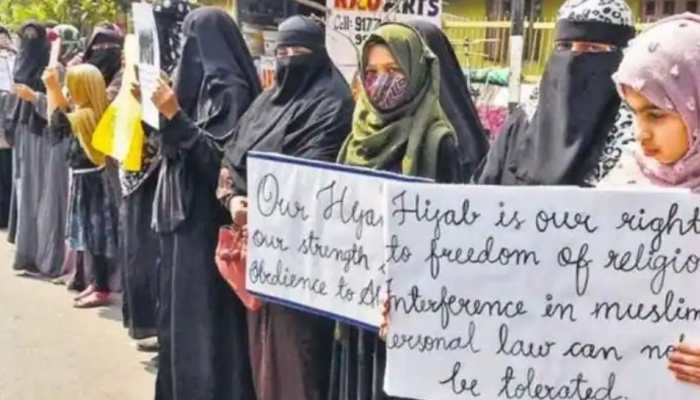 Cell-9177
ARTS
Our Hija
our strength
Obedience to Al
Hijab is our right
to freedom of religio
Interference in muslim
ersonal law can no
be tolerated.